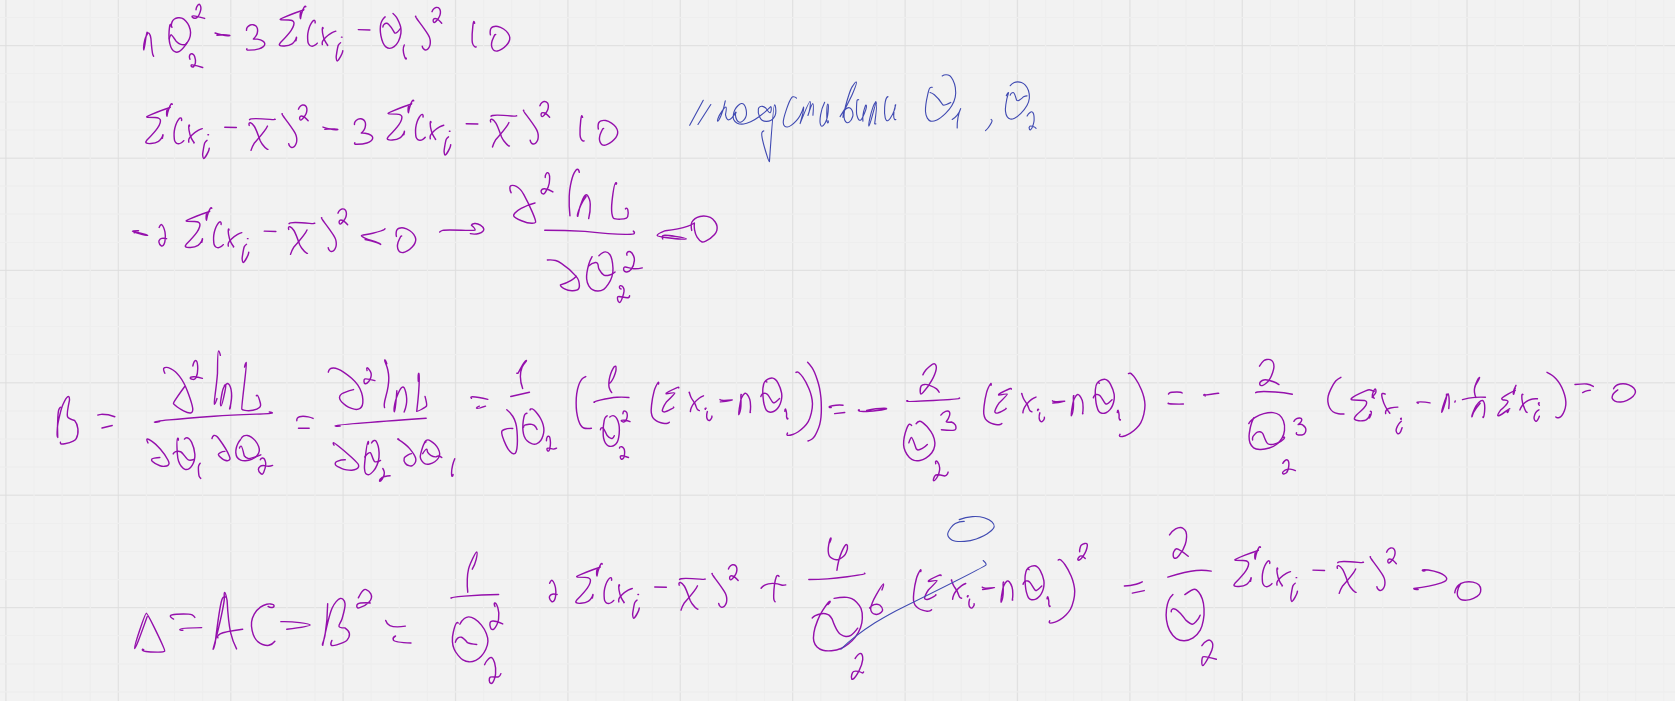 nθ₂² - 3 Σ(xᵢ - θ₁)² ( 0
Σ(xᵢ - x̄)² - 3 Σ(xᵢ - x̄)² ( 0 // подставили θ₁, θ₂
-2 Σ(xᵢ - x̄)² < 0 → ∂² ln L / ∂θ₂² < 0
B = ∂² ln L / ∂θ₁ ∂θ₂ = ∂² ln L / ∂θ₂ ∂θ₁ = 1/∂θ₂ (1/θ₂² (Σxᵢ - nθ₁)) = - 2/θ₂³ (Σxᵢ - nθ₁) = - 2/θ₂³ (Σxᵢ - n · 1/n Σxᵢ) = 0
Δ = AC - B² = 1/θ₂² 2 Σ(xᵢ - x̄)² + 4/θ₂⁶ (Σxᵢ - nθ₁)² 0 = 2/θ₂ Σ(xᵢ - x̄)² > 0